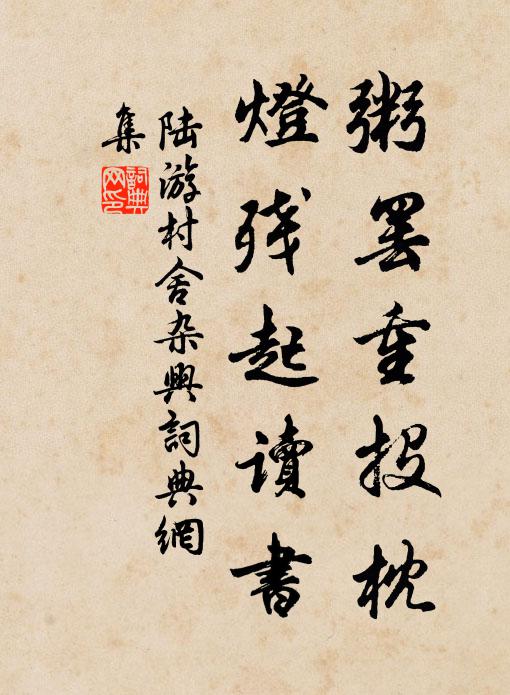 粥罢重投枕
燈残起讀書
陆游村舍杂興詞典網
集
詞典
网印